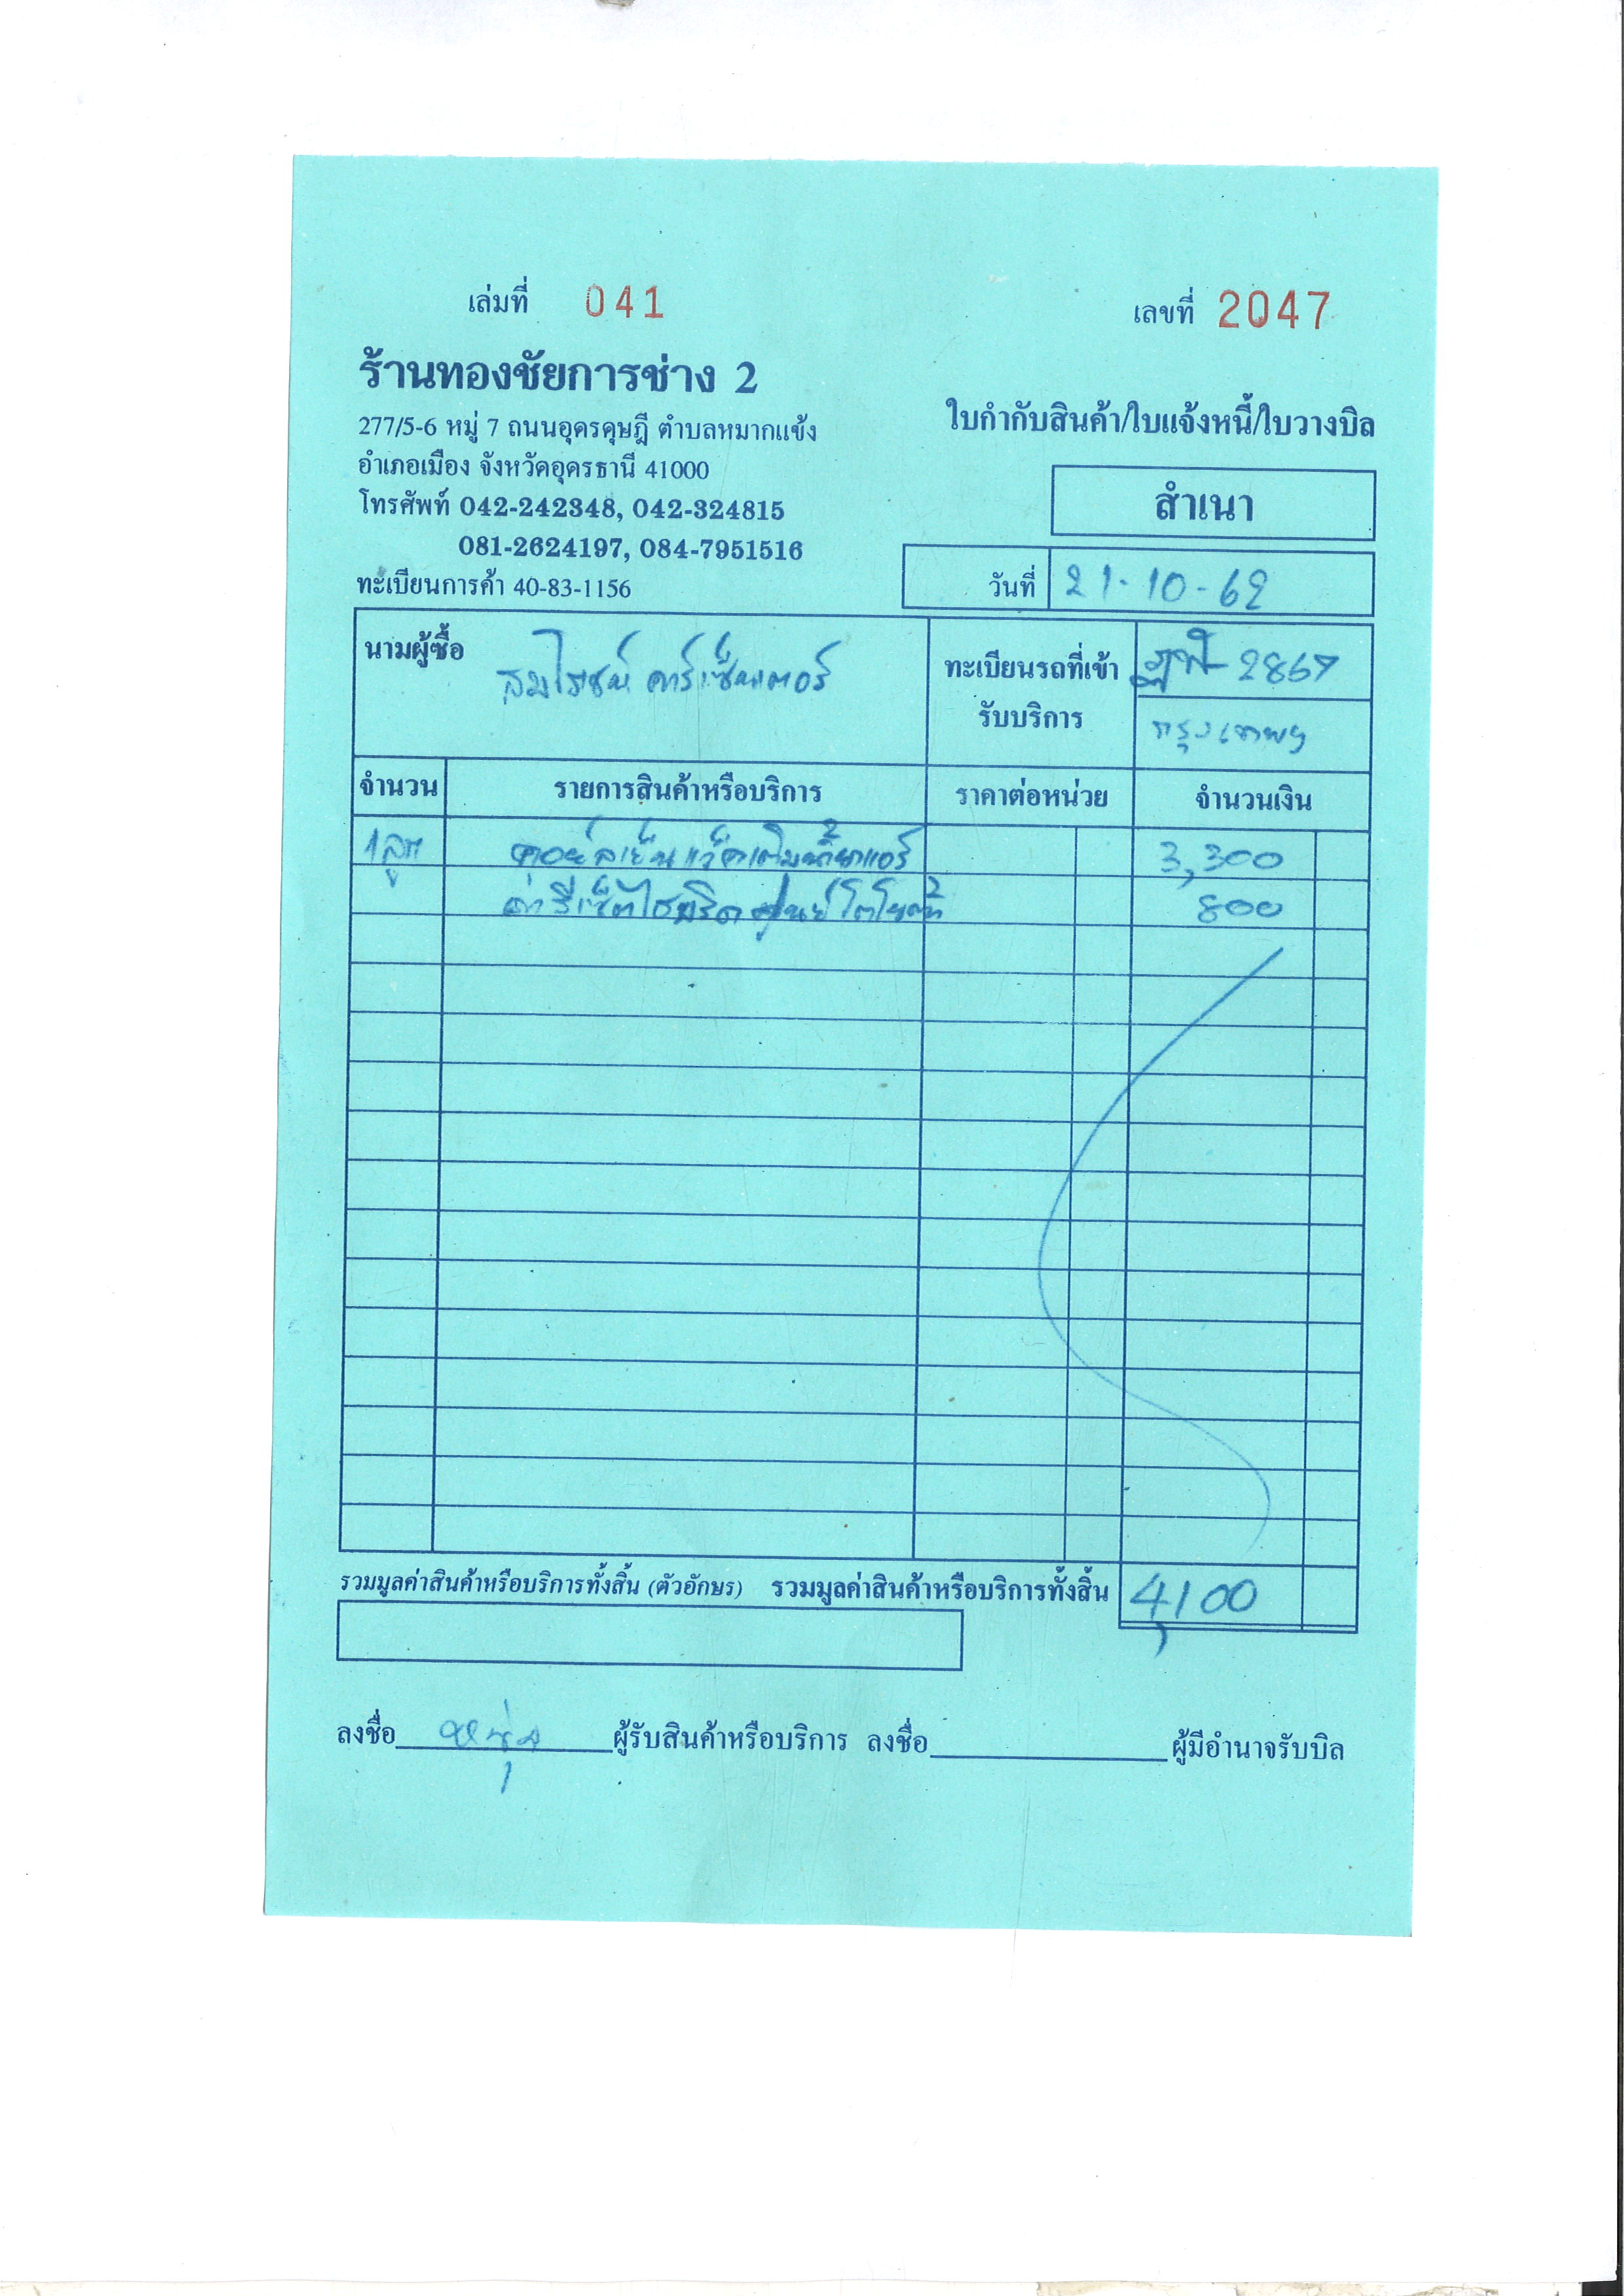 เล่มที่ 041
เลขที่ 2047
ร้านทองชัยการช่าง 2
277/5-6 หมู่ 7 ถนนอุดรดุษฎี ตำบลหมากแข้ง
อำเภอเมือง จังหวัดอุดรธานี 41000
โทรศัพท์ 042-242348, 042-324815
081-2624197, 084-7951516
ทะเบียนการค้า 40-83-1156
ใบกำกับสินค้า/ใบแจ้งหนี้/ใบวางบิล
สำเนา
วันที่ 21-10-62
นามผู้ซื้อ คาร์เซ็นเตอร์
ทะเบียนรถที่เข้า 2867
รับบริการ กรุงเทพฯ
จำนวน รายการสินค้าหรือบริการ ราคาต่อหน่วย จำนวนเงิน
1 ลูก คอยล์เย็น แว็คเติมน้ำยาแอร์ 3,300
ค่ารีเซ็ตไฮบริด ศูนย์โตโยต้า 800
รวมมูลค่าสินค้าหรือบริการทั้งสิ้น (ตัวอักษร) รวมมูลค่าสินค้าหรือบริการทั้งสิ้น 4,100
ลงชื่อ ผู้รับสินค้าหรือบริการ ลงชื่อ ผู้มีอำนาจรับบิล